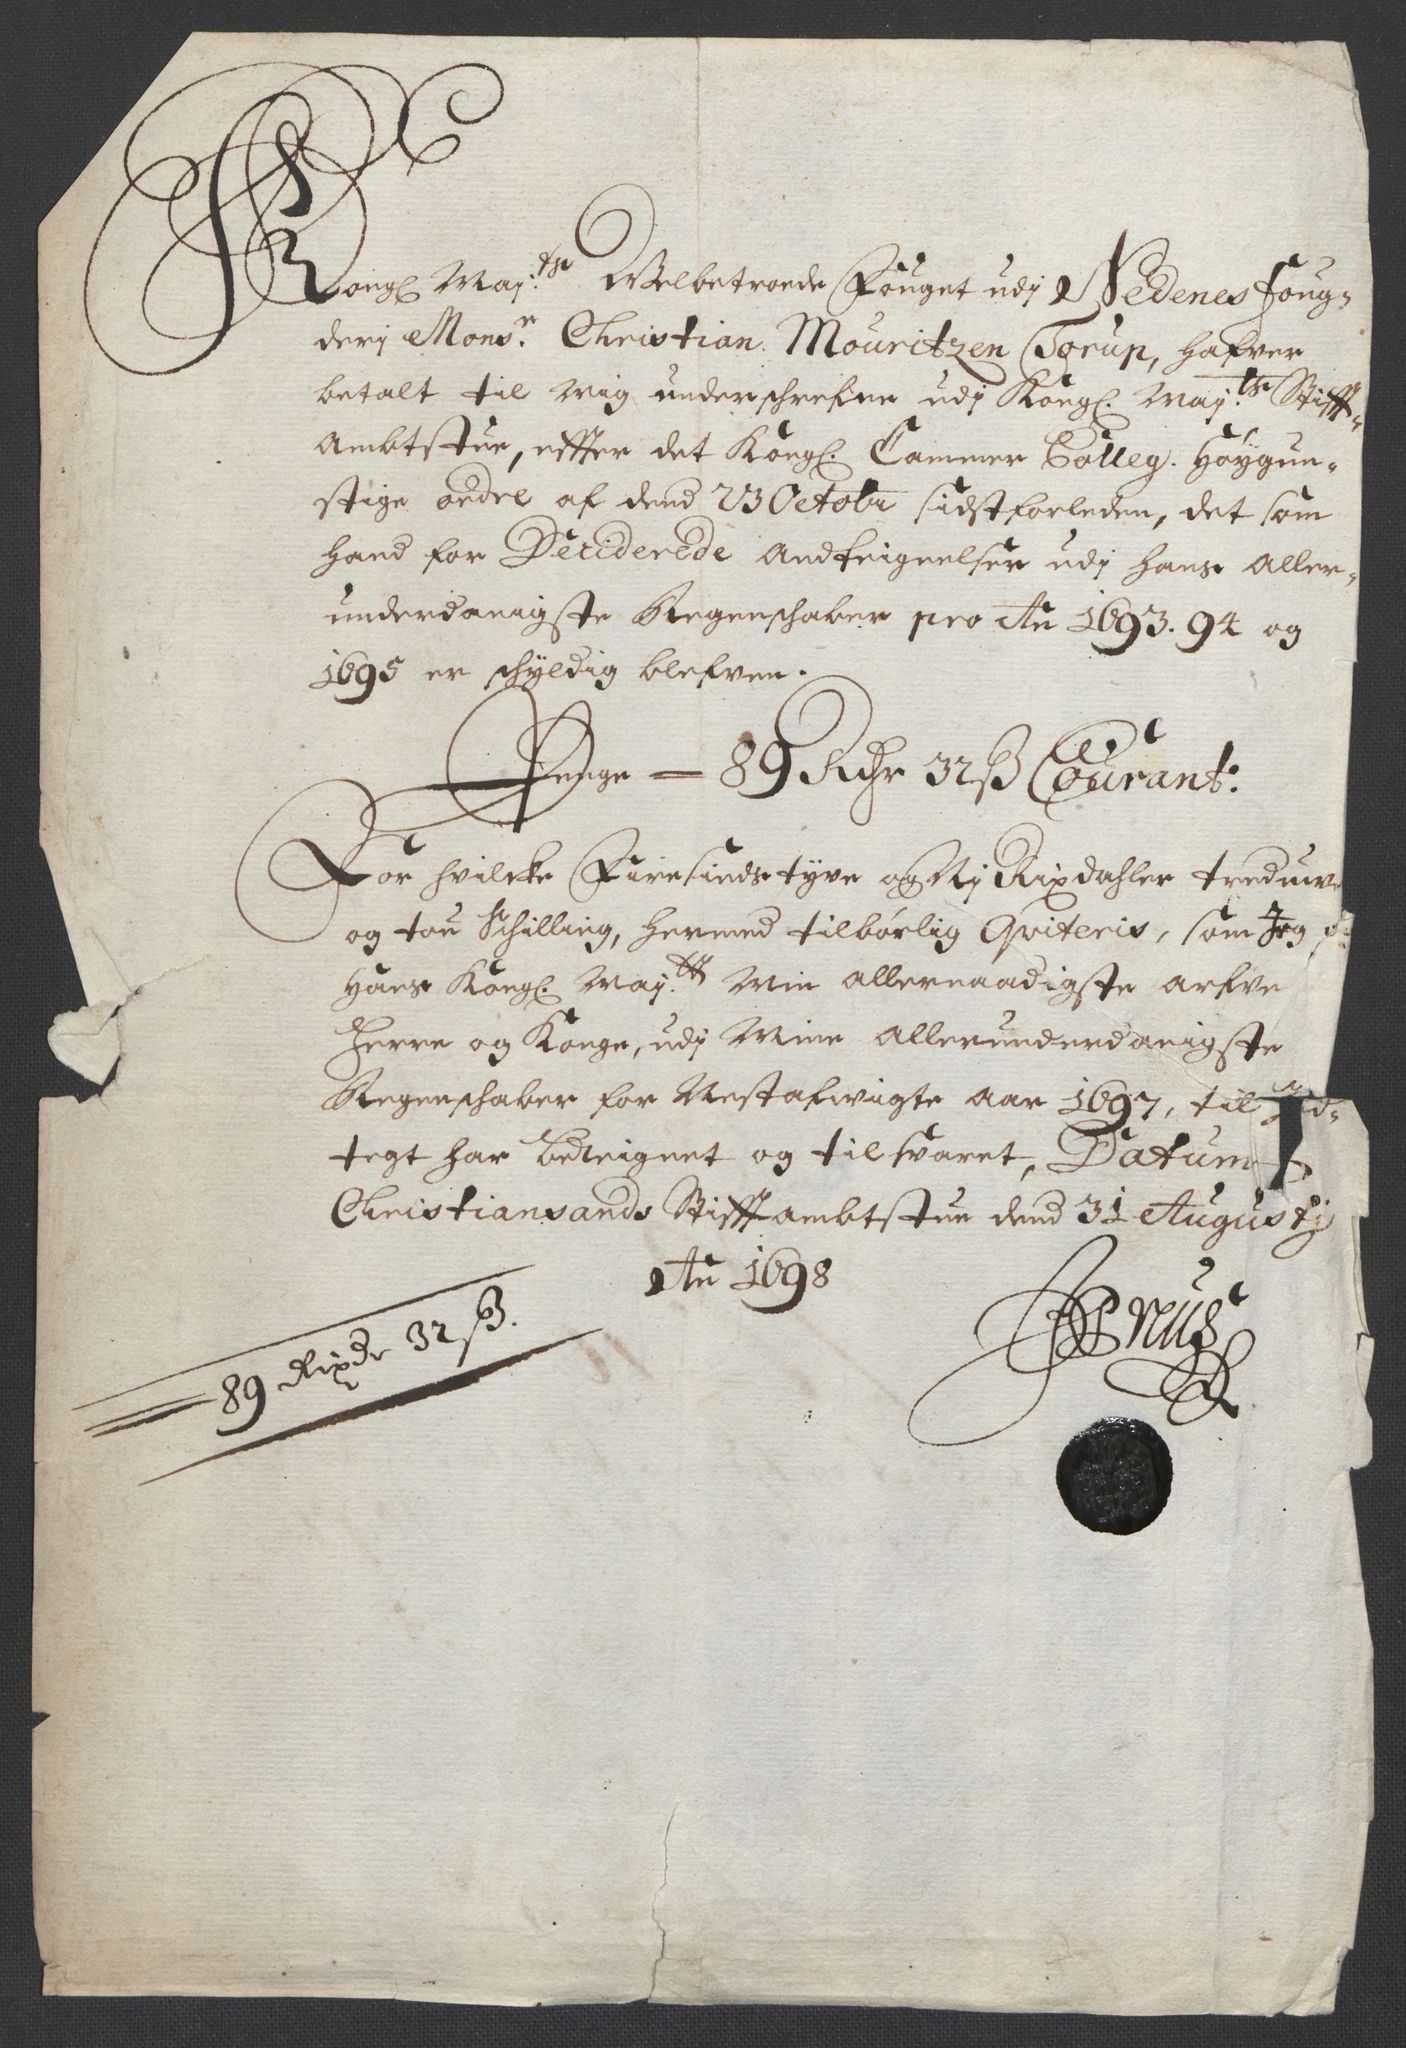 Kongl Maj:ts Welbetroede Fouget udj Nedenes foug-
derj Mons:r Christian Mouritzen Torup, hafver
betalt til mig underschrefne udj Kongl. Maj:ts Stiff-
Ambtstue, effter det Kongl. Cammer Colleg. Höygun-
stige ordre af dend 23 Octobr sidstforleden, det som
hand for Deciderede Andteignelser udj hans Aller-
underdanigste Regenschaber pro Ao 1693. 94 og
1695 er schÿldig blefven.
Penge — 89 Rdr 32 ß Courant.
For hvilcke Fiiresindstyve og Nj Rixdahler tredive
og tou Schilling, hermed tilbörlig Qviteris, som Jeg
Hans Kongl. Maj:tt Min allernaadigste arfve
Herre og Konge, udj Mine allerunderdanigste
Regenschaber for Nestafvigte aar 1697, til Ind-
tegt har beteignet og tilsvaret, Datum
Christiansands Stifftambtstue dend 31 Augustj
Ao 1698
89 Rixdr 32 ß.